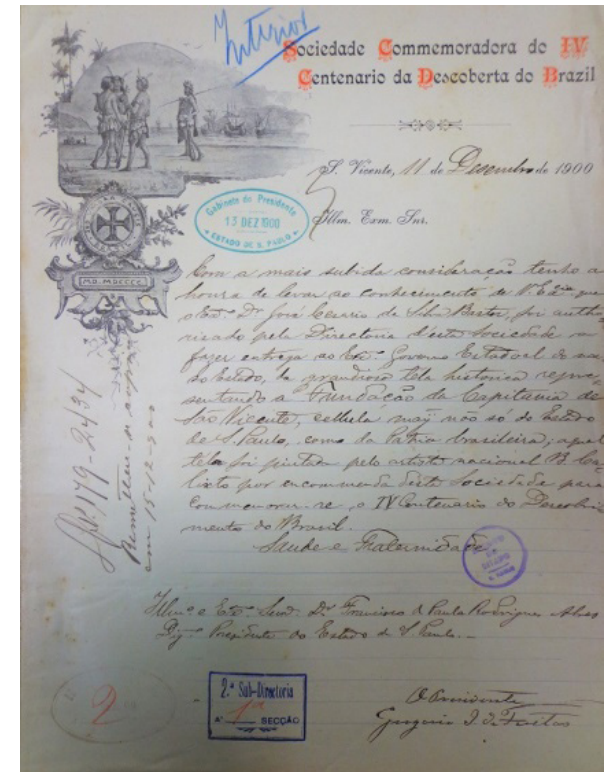 Interior
Sociedade Commemoradora do IV
Centenario da Descoberta do Brazil
S. Vicente, 11 de Dezembro de 1900
Gabinete do Presidente
13 DEZ 1900
ESTADO DE S. PAULO
Illm. Exm. Snr.
MD-MDCCCC
Com a mais subida consideração tenho a
honra de levar ao conhecimento de V. Exa. que
o Exo. Dr. José Cesario da Silva Bastos, foi autho-
risado pela Directoria d'esta Sociedade a
fazer entrega ao Exo. Governo Estadoal de nos-
so Estado, da grandiosa tela historica repre-
sentando a Fundação da Capitania de
São Vicente, cellula mãy não só do Estado
de S. Paulo, como da Patria brasileira; a qual
tela foi pintada pelo artista nacional B. Ca-
lixto por encommenda desta Sociedade para
commemorar-se o IV Centenario do Descobri-
mento do Brasil.
Saude e Fraternidade
Illmo. e Exo. Snr. Dr. Francisco de Paula Rodrigues Alves
Dig. Presidente do Estado de S. Paulo.
2.ª Sub-Directoria
A 1ª SECÇÃO
2
O Presidente
Gregorio I. de Freitas
179-24/34
em 15-12-900